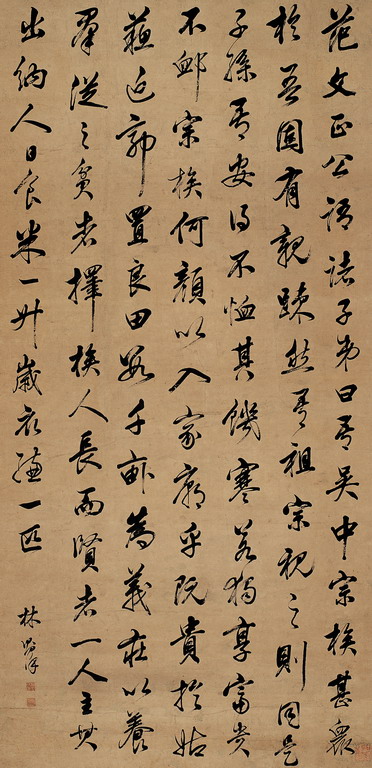 范文正公語諸子弟曰吾吳中宗族甚衆
於吾固有親踈然吾祖宗視之則同是
子孫吾安得不恤其饑寒若獨享富貴
不卹宗族何顏以入家廟乎既貴於姑
蘇近郭置良田數千畝為義庄以養
羣從之貧者擇族人長而賢者一人主其
出納人日食米一升歲衣縑一匹
林